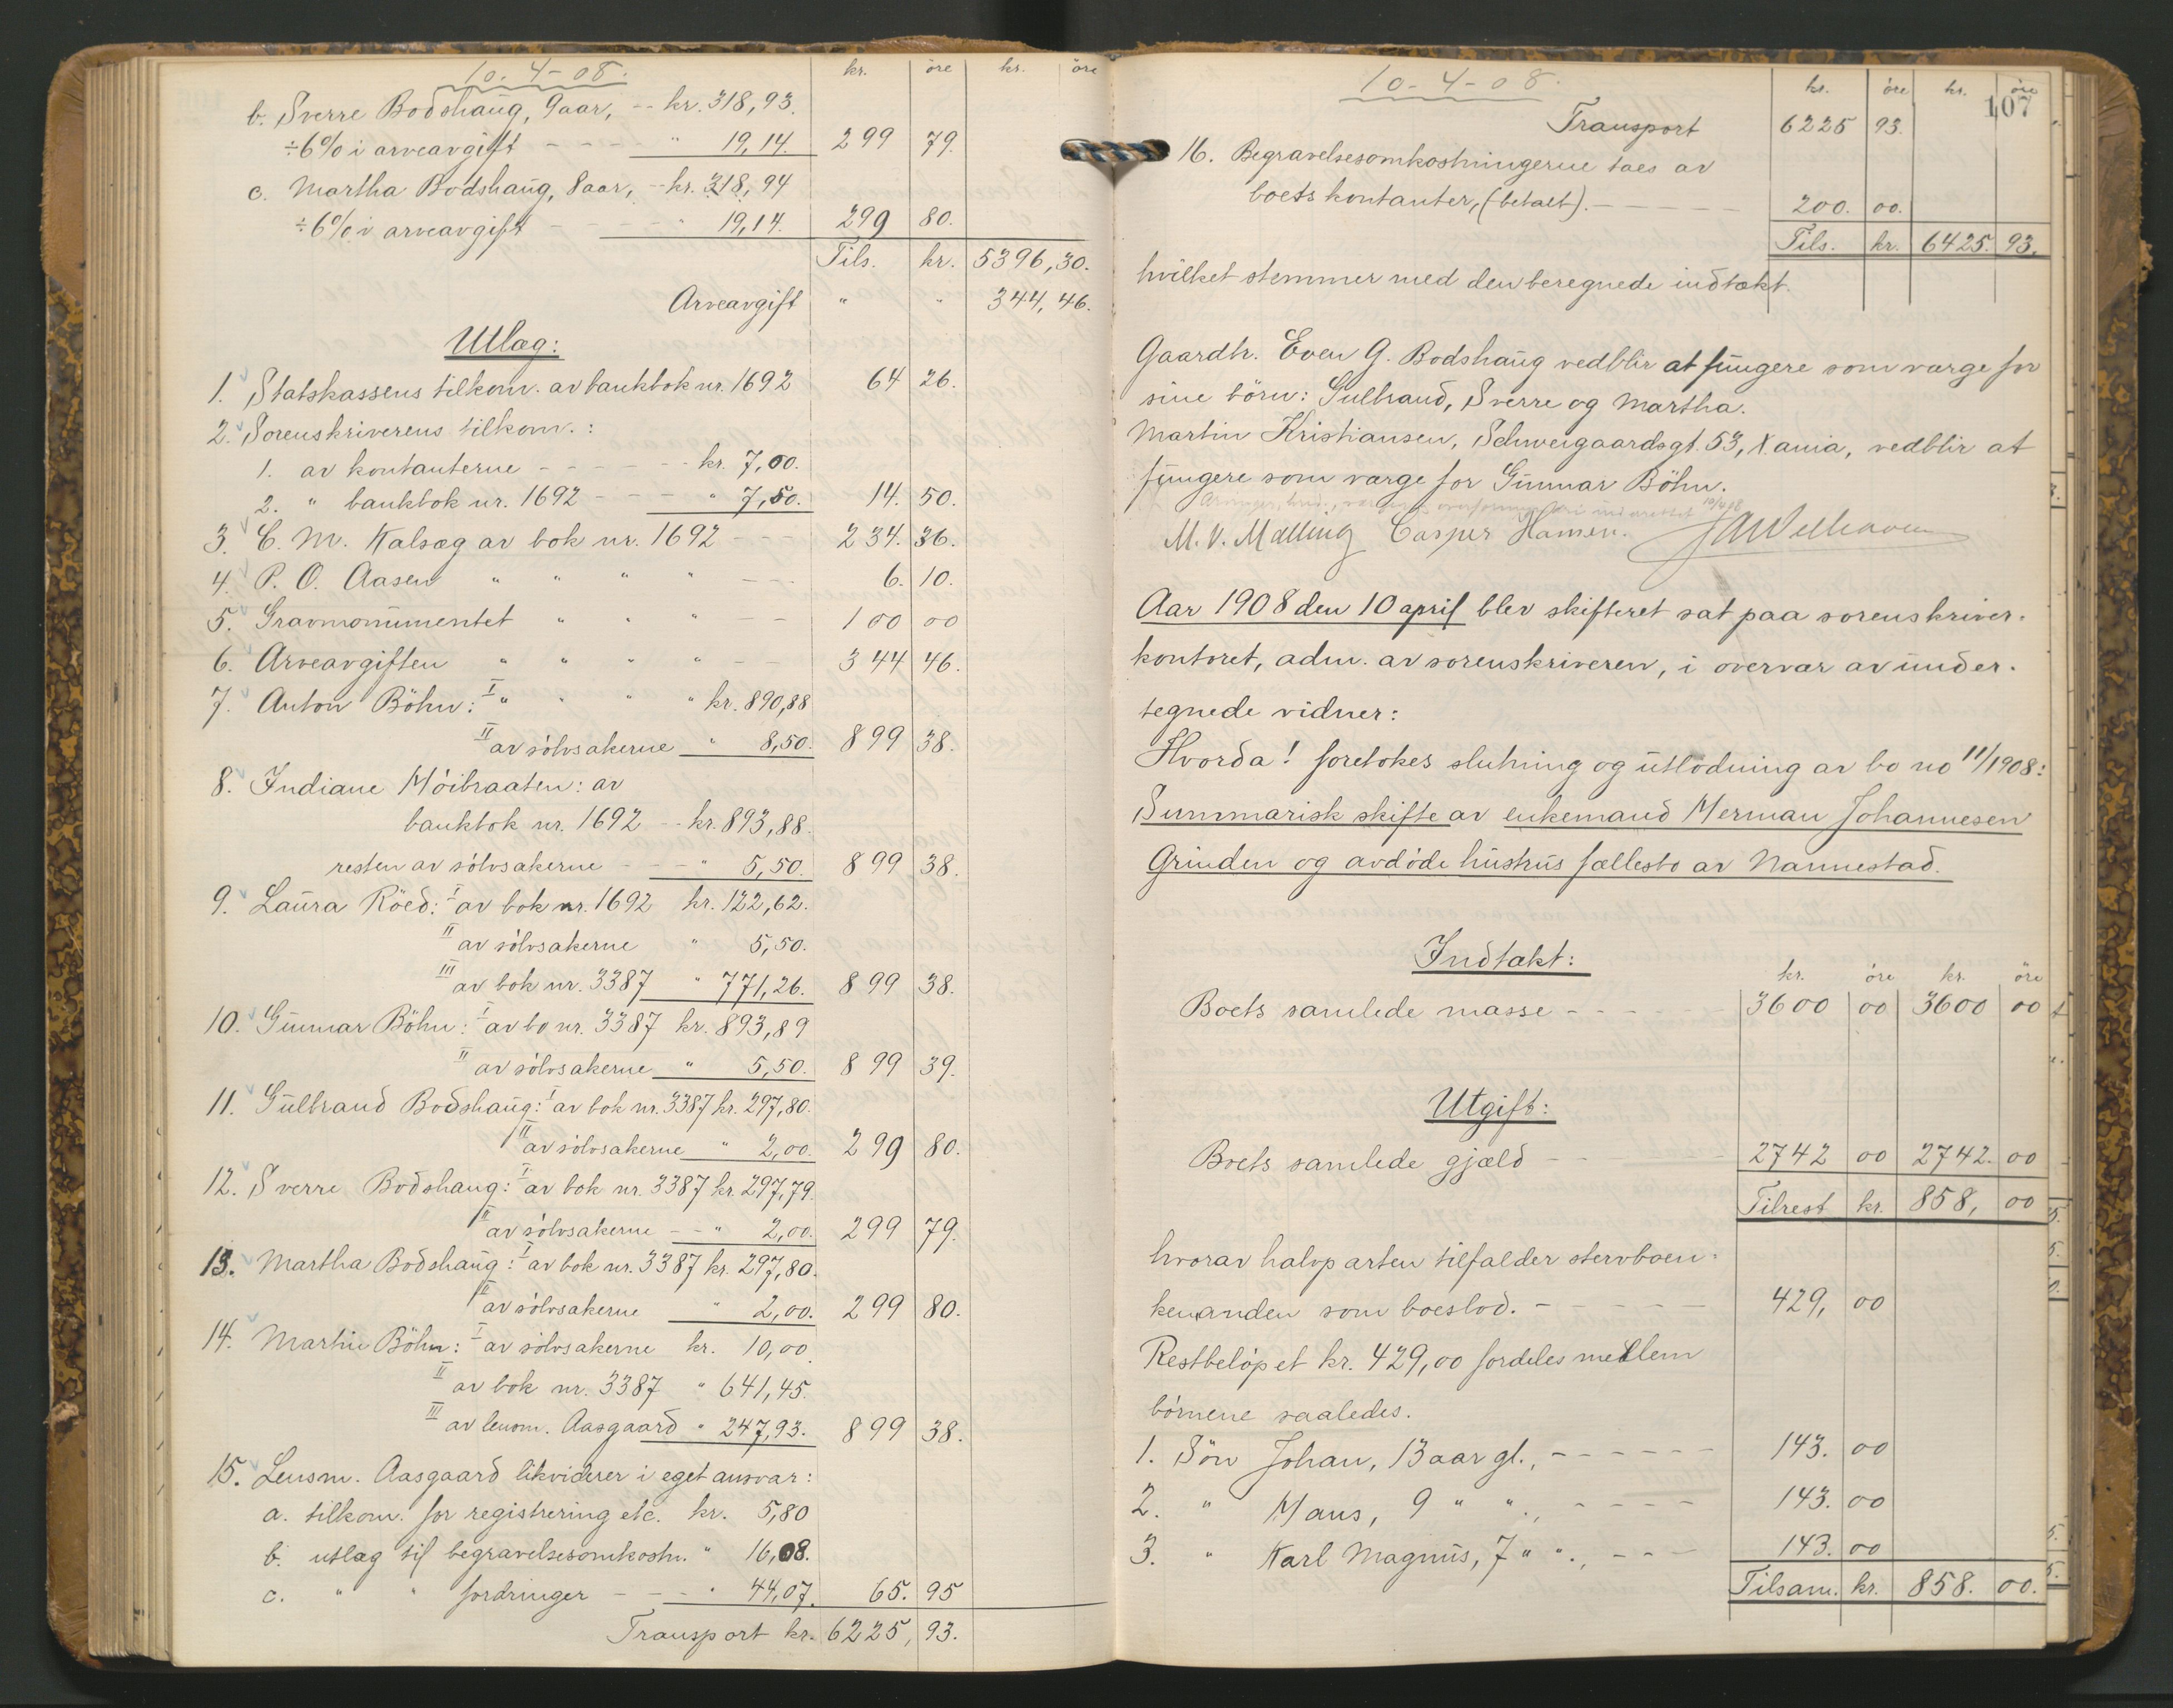 10-4-08.
kr. øre kr. øre
b. Sverre Bodshaug, 9 aar, -- kr. 318,93.
÷ 6% i arveavgift - - - - " 19,14. 299 79.
c. Martha Bodshaug, 8 aar, -- kr. 318,94
÷ 6% i arveavgift - - - " 19,14. 299 80.
Tils. kr. 5396,30.
Arveavgift " " 344,46.
Utlæg:
1. Statskassens tilkom. av bankbok nr. 1692 64 26.
2. Sorenskriverens tilkom. :
1. av kontanterne - - - - - - kr. 7,00.
2. " bankbok nr. 1692 - - - " 7,50. 14. 50.
3. C. M. Kalsæg av bok nr. 1692 - - - 234. 36.
4. P. O. Aasen " " " " - - - 6. 10.
5. Gravmonumentet " " " - - 100 00
6. Arveavgiften " " " " - - 344 46.
7. Anton Böhn: I " " " " kr. 890,88
II av sölvsakerne " 8,50. 899 38.
8. Indiane Höibraaten: av
bankbok nr. 1692 -- kr. 893,88.
resten av sölvsakerne - - - " 5,50. 899 38.
9. Laura Röed: I av bok nr. 1692 kr. 122,62.
II av sölvsakerne " 5,50.
III av bok nr. 3387 " 771,26. 899 38.
10. Gunnar Böhn: I av bo nr. 3387 kr. 893,89
II av sölvsakerne " 5,50. 899 39.
11. Gulbrand Bodshaug: I av bok nr. 3387 kr. 297,80.
II av sölvsakerne " 2,00. 299 80.
12. Sverre Bodshaug: I av bok nr. 3387 kr. 297,79.
II av sölvsakerne -- " 2,00. 299 79.
13. Martha Bodshaug: I av bok nr. 3387 kr. 297,80.
II av sölvsakerne " 2,00. 299 80.
14. Martin Böhn: I av sölvsakerne kr. 10,00.
II av bok nr. 3387 " 641,45.
III av lensm. Aasgaard " 247,93. 899 38.
15. Lensm. Aasgaard likviderer i eget ansvar:
a. tilkom. for registrering etc. kr. 5,80
b. utlæg til begravelsesomkostn. " 16,08.
c. " " fordringer - - - " 44,07. 65. 95
Transport kr. 6225, 93.
10-4-08.
kr. øre kr. øre
107
Transport 6225 93.
16. Begravelsesomkostningerne taes av
boets kontanter, (betalt). - - - - - 200. 00.
Tils. kr. 6425. 93.
hvilket stemmer med den beregnede indtækt.
Gaardbr. Even G. Bodshaug vedblir at fungere som værge for
sine börn: Gulbrand, Sverre og Martha.
Martin Kristiansen, Schweigaardsgt. 53, Xania, vedblir at
fungere som værge for Gunnar Böhn.
M. V. Malling Casper Hansen.
Aar 1908 den 10 april blev skifteret sat paa sorenskriver-
kontoret, adm. av sorenskriveren, i overvær av under-
tegnede vidner:
Hvorda! foretokes slutning og utlodning av bo no 11/1908:
Summarisk skifte av enkemand Herman Johannesen
Grinden og avdöde hustrus fællesbo av Nannestad.
Indtækt:
kr. öre kr. öre
Boets samlede masse - - - - - - 3600 00 3600 00
Utgift:
Boets samlede gjæld - - - - - 2742 00 2742. 00
Tilrest kr. 858, 00
hvorav halvparten tilfalder stervboen-
kemanden som boeslod. - - - - - 429, 00
Restbelöpet kr. 429,00 fordeles mellem
börnene saaledes.
1. Sön Johan, 13 aar gl., - - - - - - 143. 00
2. " Hans, 9 " "., - - - - 143. 00
3. " Karl Magnus, 7 " "., - - - 143. 00
Tilsam. kr. 858. 00.